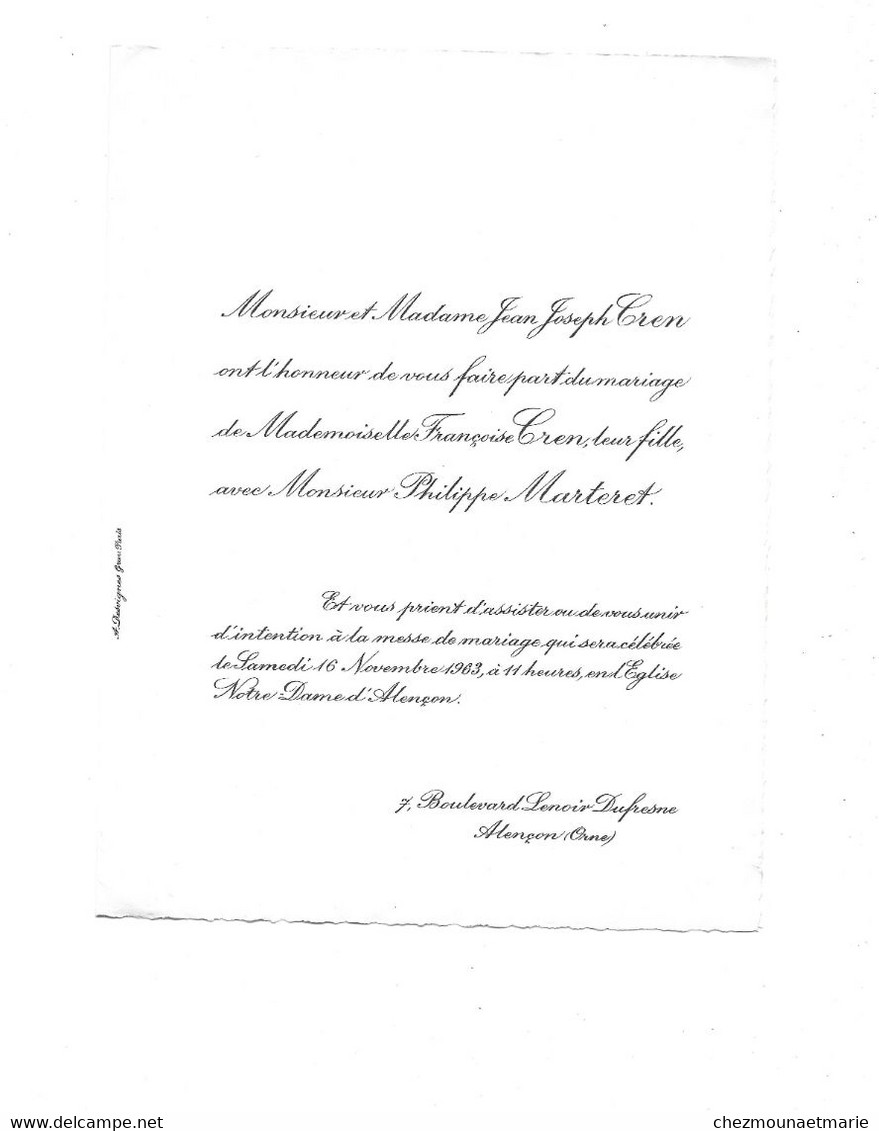 Monsieur et Madame Jean Joseph Cren
ont l'honneur de vous faire part du mariage
de Mademoiselle Françoise Cren, leur fille,
avec Monsieur Philippe Marteret.
Et vous prient d'assister ou de vous unir
d'intention à la messe de mariage qui sera célébrée
le Samedi 16 Novembre 1963, à 11 heures, en l'Eglise
Notre-Dame d'Alençon.
7, Boulevard Lenoir Dufresne
Alençon (Orne)
A. Desvignes Grav. Paris
delcampe.net
chezmounaetmarie